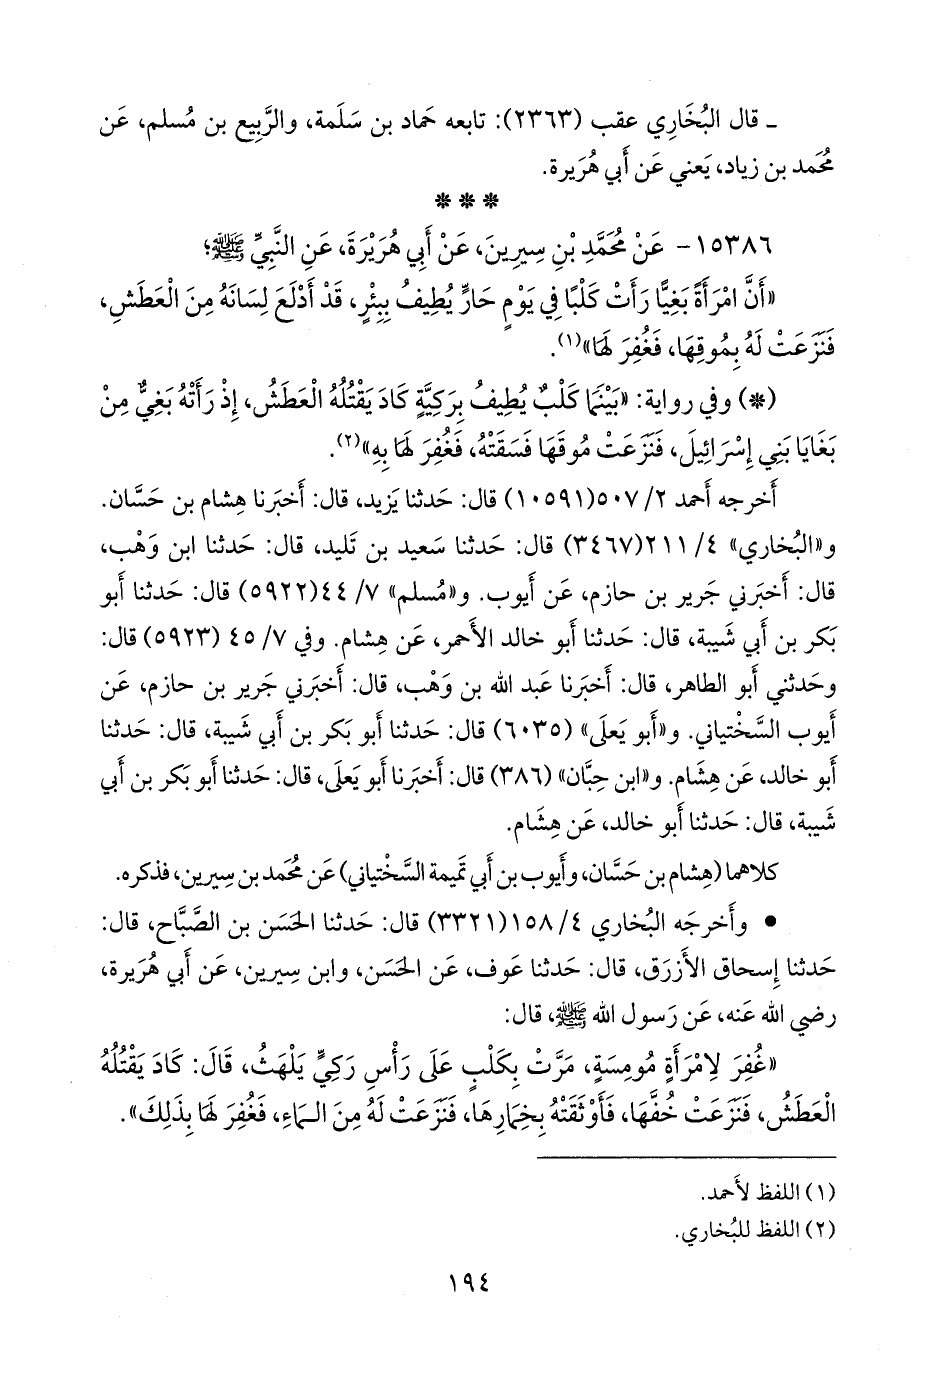 ـ قال البُخَارِي عقب (٢٣٦٣): تابعه حَماد بن سَلَمة، والرَّبِيع بن مُسلم، عَن
مُحَمد بن زياد، يَعني عَن أَبي هُرَيرة.
* * *
١٥٣٨٦- عَنْ مُحَمَّدِ بْنِ سِيرِينَ، عَنْ أَبِي هُرَيْرَةَ، عَنِ النَّبِيِّ ﷺ؛
«أَنَّ امْرَأَةً بَغِيًّا رَأَتْ كَلْبًا فِي يَوْمٍ حَارٍّ يُطِيفُ بِبِئْرٍ، قَدْ أَدْلَعَ لِسَانَهُ مِنَ الْعَطَشِ،
فَنَزَعَتْ لَهُ بِمُوقِهَا، فَغُفِرَ لَهَا»(١).
(*) وفي رواية: «بَيْنَمَا كَلْبٌ يُطِيفُ بِرَكِيَّةٍ كَادَ يَقْتُلُهُ الْعَطَشُ، إِذْ رَأَتْهُ بَغِيٌّ مِنْ
بَغَايَا بَنِي إِسْرَائِيلَ، فَنَزَعَتْ مُوقَهَا فَسَقَتْهُ، فَغُفِرَ لَهَا بِهِ»(٢).
أَخرجه أَحمد ٢/ ٥٠٧(١٠٥٩١) قال: حَدثنا يَزيد، قال: أَخبَرنا هِشام بن حَسَّان.
و«البُخاري» ٤/ ٢١١(٣٤٦٧) قال: حَدثنا سَعيد بن تَليد، قال: حَدثنا ابن وَهْب،
قال: أَخبَرني جَرير بن حازم، عَن أَيوب. و«مُسلم» ٧/ ٤٤(٥٩٢٢) قال: حَدثنا أَبو
بَكر بن أَبي شَيبة، قال: حَدثنا أَبو خالد الأَحمر، عَن هِشام. وفي ٧/ ٤٥ (٥٩٢٣) قال:
وحَدثني أَبو الطاهر، قال: أَخبَرنا عَبد الله بن وَهْب، قال: أَخبَرني جَرير بن حازم، عَن
أَيوب السَّخْتياني. و«أَبو يَعلَى» (٦٠٣٥) قال: حَدثنا أَبو بَكر بن أَبي شَيبة، قال: حَدثنا
أَبو خالد، عَن هِشَام. و«ابن حِبَّان» (٣٨٦) قال: أَخبَرنا أَبو يَعلَى، قال: حَدثنا أَبو بَكر بن أَبي
شَيبة، قال: حَدثنا أَبو خالد، عَن هِشَام.
كلاهما (هِشام بن حَسَّان، وأَيوب بن أَبي تَميمة السَّخْتياني) عَن مُحَمد بن سِيرين، فذكره.
• وأَخرجَه البُخاري ٤/ ١٥٨(٣٣٢١) قال: حَدثنا الحَسَن بن الصَّبَّاح، قال:
حَدثنا إِسحاق الأَزرَق، قال: حَدثنا عَوف، عَن الحَسَن، وابن سِيرين، عَن أَبي هُرَيرة،
رضي الله عَنه، عَن رَسول الله ﷺ، قال:
«غُفِرَ لِامْرَأَةٍ مُومِسَةٍ، مَرَّتْ بِكَلْبٍ عَلَى رَأْسِ رَكِيٍّ يَلْهَثُ، قَالَ: كَادَ يَقْتُلُهُ
الْعَطَشُ، فَنَزَعَتْ خُفَّهَا، فَأَوْثَقَتْهُ بِخِمَارِهَا، فَنَزَعَتْ لَهُ مِنَ الْمَاءِ، فَغُفِرَ لَهَا بِذَلِكَ».
(١) اللفظ لأَحمد.
(٢) اللفظ للبُخاري.
١٩٤